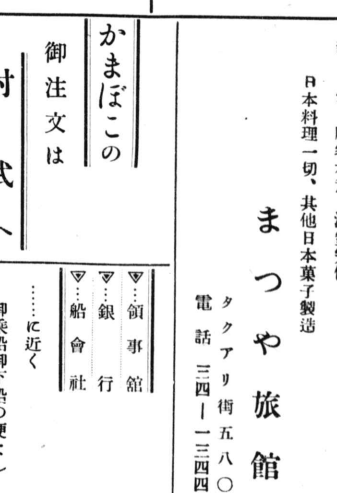 日本料理一切、其他日本菓子製造
まつや旅館
タクアリ街五八〇
電話 三四—一三四四
かまぼこの
御注文は
▽…領事館
▽…銀行
▽…船會社
……に近く